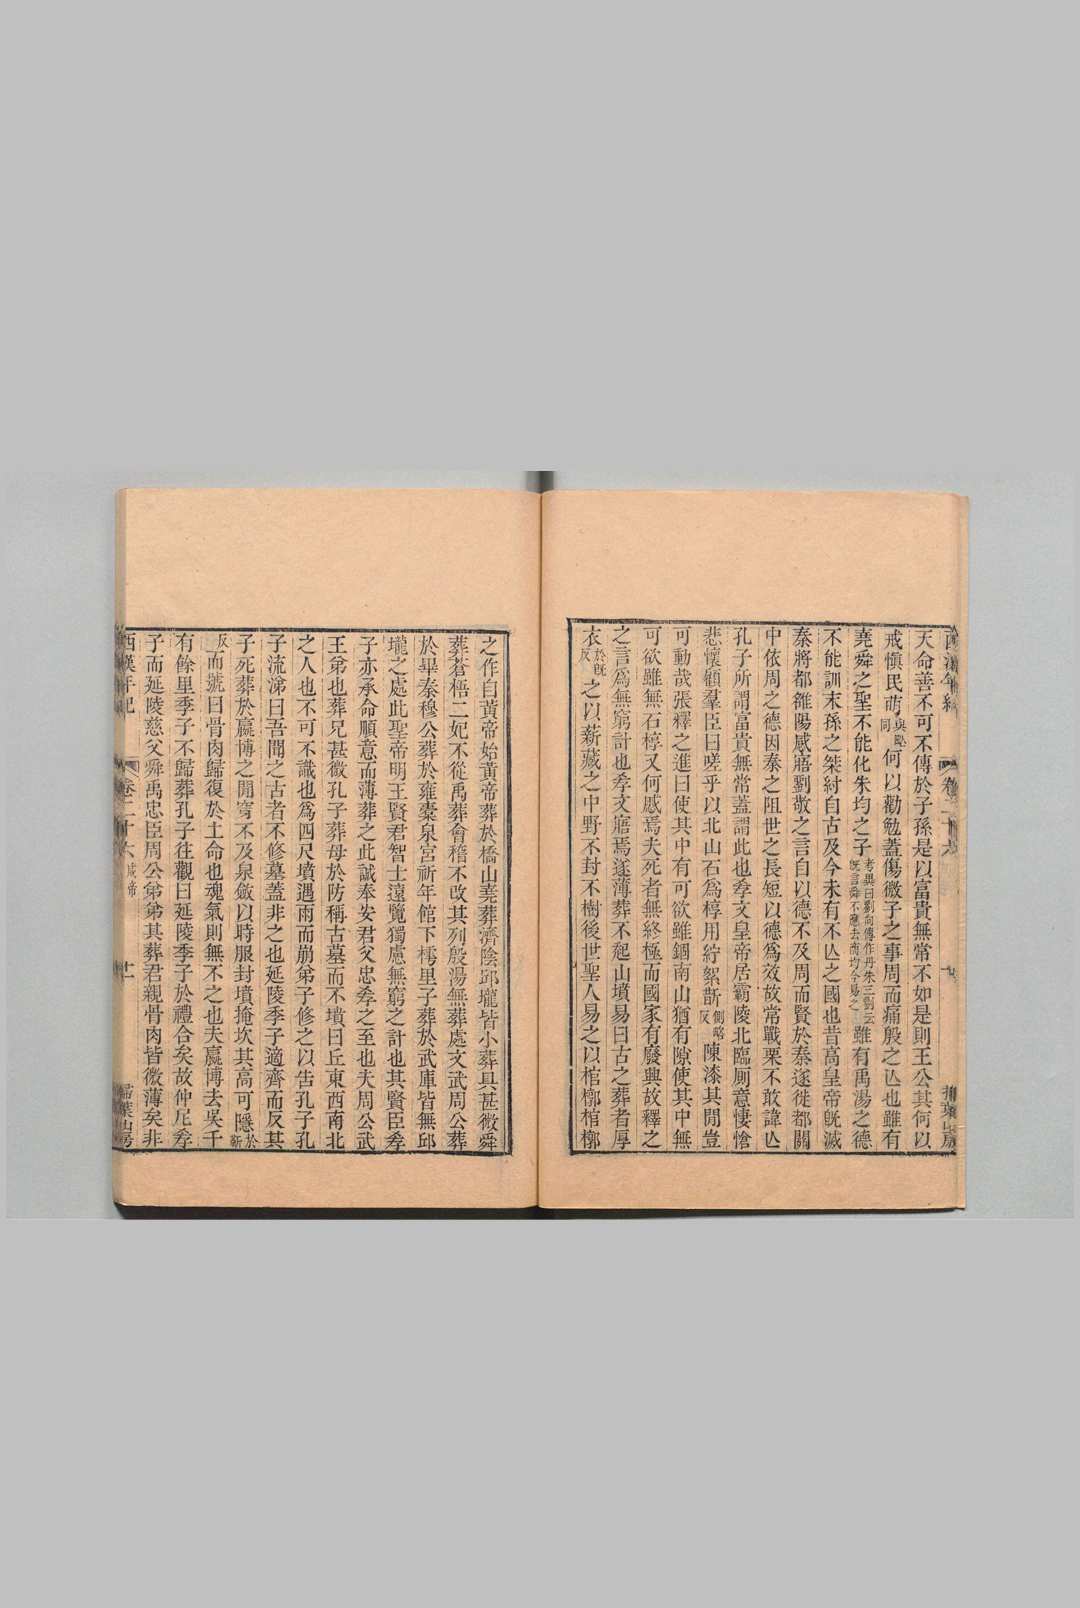 天命善不可不傳於子孫是以富貴無常不如是則王公其何以
戒愼民萌與甿同何以勸勉蓋傷微子之事周而痛殷之亾也雖有
堯舜之聖不能化朱均之子考異曰劉向傳作丹朱三劉云旣言舜不應去商均今易之雖有禹湯之德
不能訓末孫之桀紂自古及今未有不亾之國也昔高皇帝旣滅
秦將都雒陽感寤劉敬之言自以德不及周而賢於秦遂徙都關
中依周之德因秦之阻世之長短以德爲效故常戰栗不敢諱亾
孔子所謂富貴無常蓋謂此也孝文皇帝居霸陵北臨厠意悽愴
悲懷顧羣臣曰嗟乎以北山石爲椁用紵絮斮側略反陳漆其閒豈
可動哉張釋之進曰使其中有可欲雖錮南山猶有隙使其中無
可欲雖無石椁又何慼焉夫死者無終極而國家有廢興故釋之
之言爲無窮計也孝文寤焉遂薄葬不起山墳易曰古之葬者厚
衣於旣反之以薪藏之中野不封不樹後世聖人易之以棺槨棺槨
之作自黃帝始黃帝葬於橋山堯葬濟陰邱壠皆小葬具甚微舜
葬蒼梧二妃不從禹葬會稽不改其列殷湯無葬處文武周公葬
於畢秦穆公葬於雍橐泉宮祈年館下樗里子葬於武庫皆無邱
壠之處此聖帝明王賢君智士遠覽獨慮無窮之計也其賢臣孝
子亦承命順意而薄葬之此誠奉安君父忠孝之至也夫周公武
王弟也葬兄甚微孔子葬母於防稱古墓而不墳曰丘東西南北
之人也不可不識也爲四尺墳遇雨而崩弟子修之以告孔子孔
子流涕曰吾聞之古者不修墓蓋非之也延陵季子適齊而反其
子死葬於嬴博之閒穿不及泉斂以時服封墳掩坎其高可隱於靳
反而號曰骨肉歸復於土命也魂氣則無不之也夫嬴博去吳千
有餘里季子不歸葬孔子往觀曰延陵季子於禮合矣故仲尼孝
子而延陵慈父舜禹忠臣周公弟弟其葬君親骨肉皆微薄矣非
西漢年紀 卷二十六 成帝 十一 掃葉山房